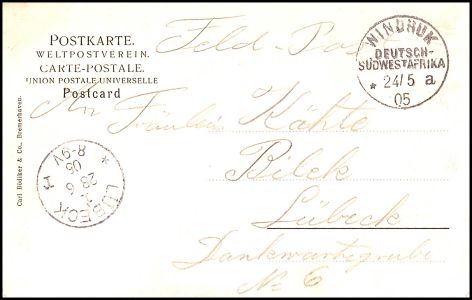 POSTKARTE.
WELTPOSTVEREIN.
CARTE-POSTALE.
UNION POSTALE UNIVERSELLE
Postcard
Feld-Post
WINDHUK
DEUTSCH-
SÜDWESTAFRIKA
* 24/5 a
05
An Fräulein Käthe
Bilck
Lübeck
Dankwartsgrube
No 6
Carl Bödiker & Co., Bremerhaven.
* LÜBECK 1
28 6
05
8-9V